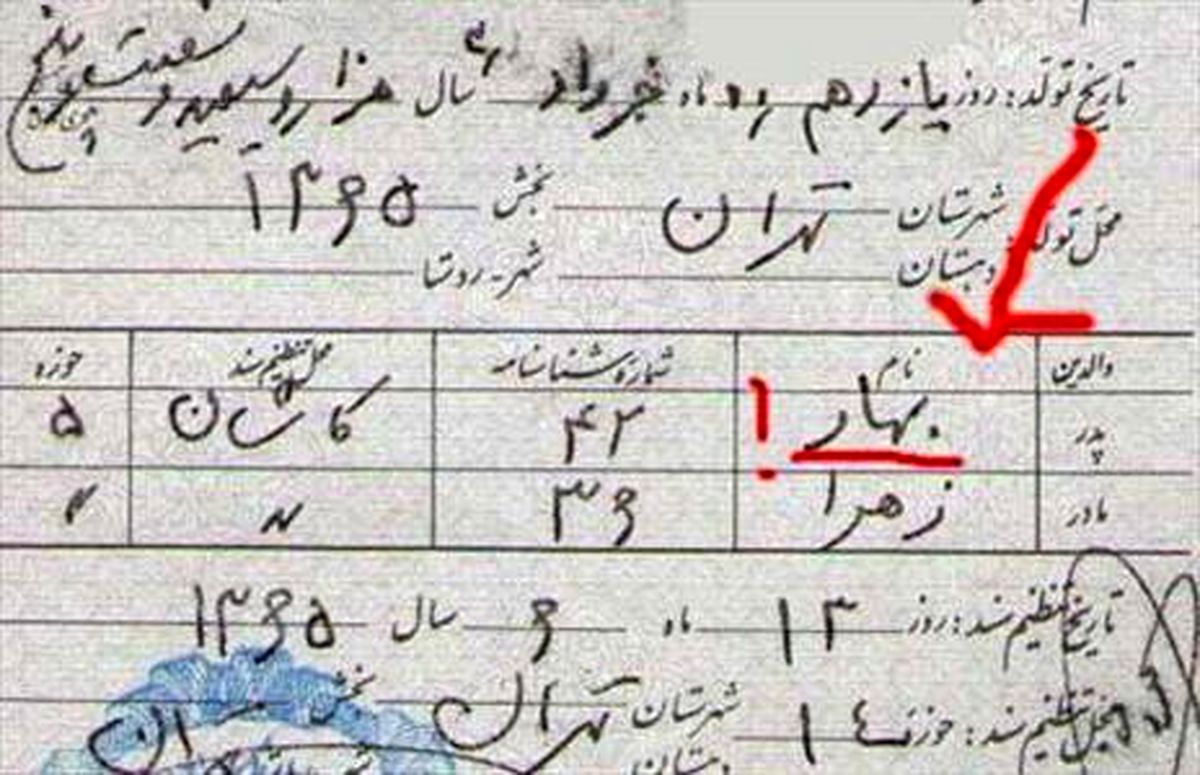 تاریخ تولد: روز یازدهم ماه خرداد سال هزار و سیصد و شصت و پنج
محل تولد: شهرستان تهران بخش ۱۳۶۵
دهستان شهر-روستا
والدین نام شماره شناسنامه محل تنظیم سند حوزه
پدر بهار ! ۴۲ کاشان ۵
مادر زهرا ۳۶ " "
تاریخ تنظیم سند: روز ۱۳ ماه ۶ سال ۱۳۶۵
محل تنظیم سند: حوزه شهرستان تهران بخش
دهستان